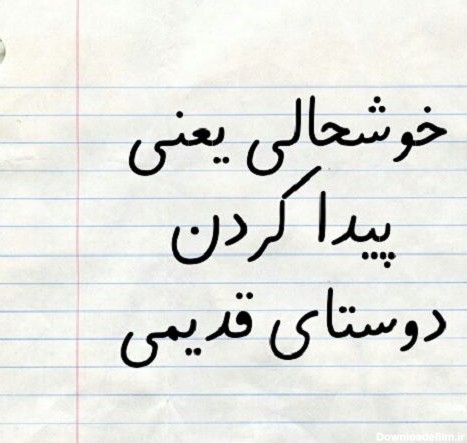 خوشحالی یعنی
پیدا کردن
دوستای قدیمی
Downloadefilm.ir